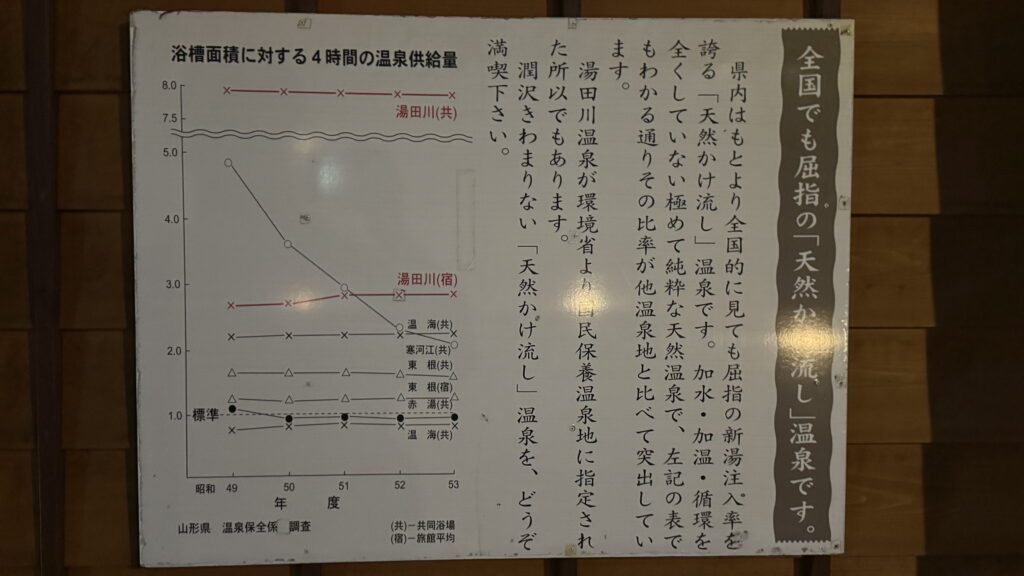 全国でも屈指の「天然かけ流し」温泉です。
県内はもとより全国的に見ても屈指の新湯注入率を
誇る「天然かけ流し」温泉です。加水・加温・循環を
全くしていない極めて純粋な天然温泉で、左記の表で
もわかる通りその比率が他温泉地と比べて突出してい
ます。
湯田川温泉が環境省より国民保養温泉地に指定され
た所以でもあります。
潤沢きわまりない「天然かけ流し」温泉を、どうぞ
満喫下さい。
浴槽面積に対する4時間の温泉供給量
8.0
湯田川(共)
7.5
5.0
4.0
湯田川(宿)
3.0
温 海(共)
寒河江(共)
2.0
東 根(共)
東 根(宿)
赤 湯(共)
標準 1.0
温 海(共)
昭和 49 50 51 52 53
年 度
山形県 温泉保全係 調査
(共)ー共同浴場
(宿)ー旅館平均